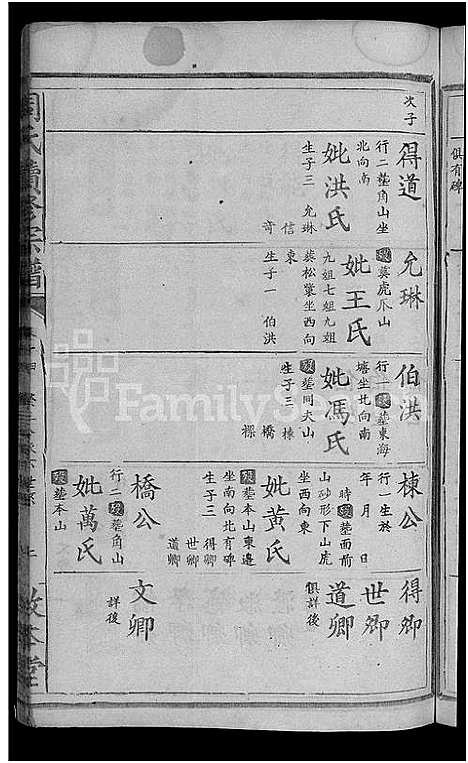 次子
得道
行二塟角山坐
北向南
妣洪氏
生子三 允琳
信
奇
允琳
歿葬虎爪山
妣王氏
九姐七姐九姐
葬松窠坐西向
東
生子一 伯洪
伯洪
行一歿塟東海
塘坐北向南
妣馮氏
歿塟同夫山
生子三 棟
橋
棟公
行一生於
年 月 日
時歿塟面前
山砂形下山虎
坐西向東
妣黄氏
歿塟本山東邊
坐南向北有碑
生子三 得卿
世卿
道卿
橋公
行二歿塟角山
妣萬氏
歿塟本山
得卿
世卿
道卿
俱詳後
文卿
詳後
俱有碑
周氏續修宗譜
敦本堂
FamilySearch